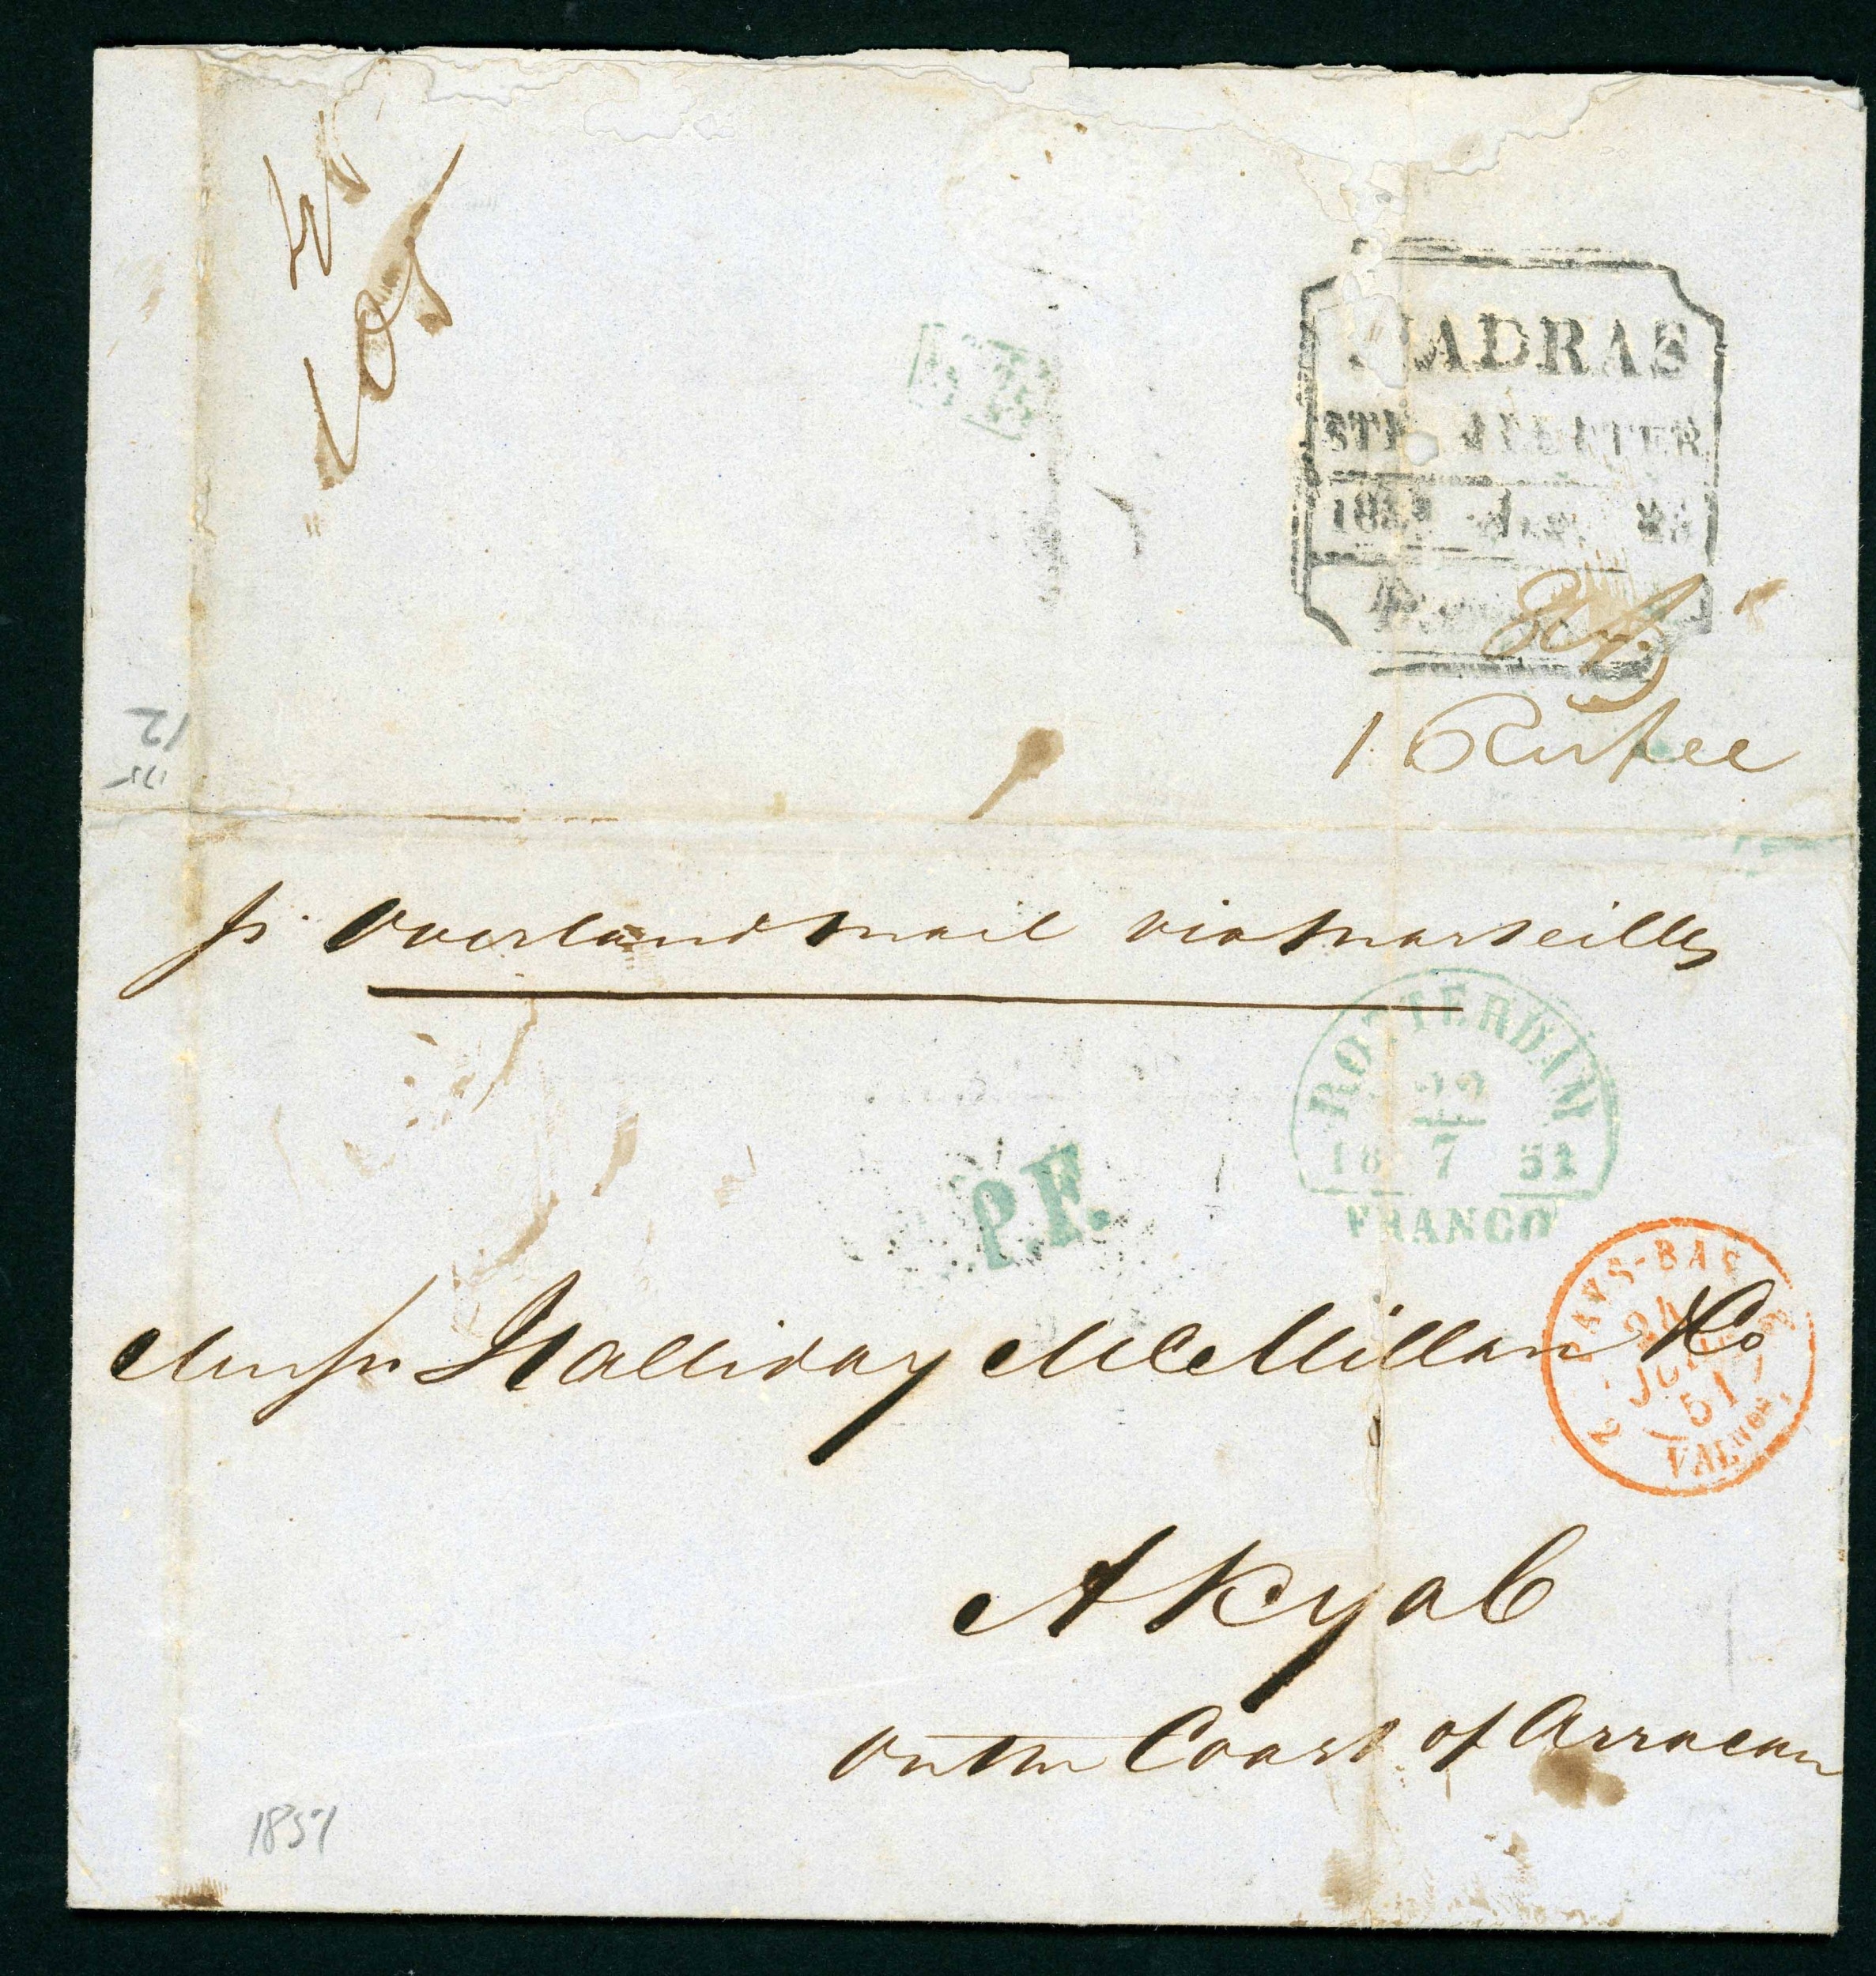 105
MADRAS
1 Rupee
12
pr. Overland mail via Marseilles
ROTTERDAM
22
18 7 51
FRANCO
P.F.
PAYS-BAS
24
JUIL
51
2 VALnes 2
Messrs. Halliday McMillan & Co
Akyab
on the Coast of Arracan
1851